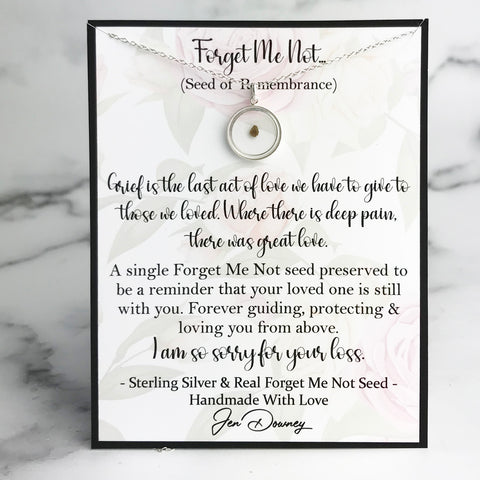 Forget Me Not...
(Seed of Remembrance)
Grief is the last act of love we have to give to
those we loved. Where there is deep pain,
there was great love.
A single Forget Me Not seed preserved to
be a reminder that your loved one is still
with you. Forever guiding, protecting &
loving you from above.
I am so sorry for your loss.
- Sterling Silver & Real Forget Me Not Seed -
Handmade With Love
Jen Downey